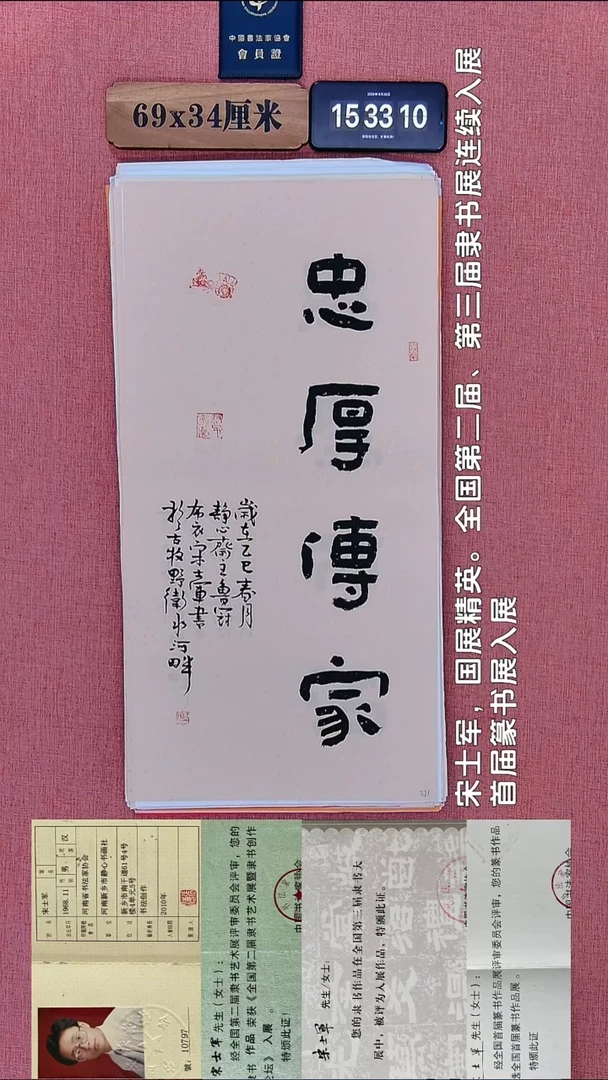 中國書法家協會
會員證
69x34厘米
2025年4月28日
15 33 10
忠厚傳家
歲在乙巳春月
靜心齋主魯冠
布衣宋士軍書
於古牧野衛水河畔
宋士军，国展精英。全国第二届、第三届隶书展连续入展
首届篆书展入展
宋士军
1968.11
男
汉
河南省书法家协会
河南新乡市静心书画社
书法创作
2010年
號：10797
宋士军 先生（女士）：
经全国第二届隶书艺术展评审委员会评审，您的
隶书 作品 荣获《全国第二届隶书艺术展暨隶书创作
论坛》入展 。
特颁此证！
宋士军 先生/女士：
您的隶书作品在全国第三届隶书大
展中，被评为入展作品，特颁此证。
士军 先生（女士）：
经全国首届篆书作品展评审委员会评审，您的篆书作品
选全国首届篆书作品展。
特颁此证